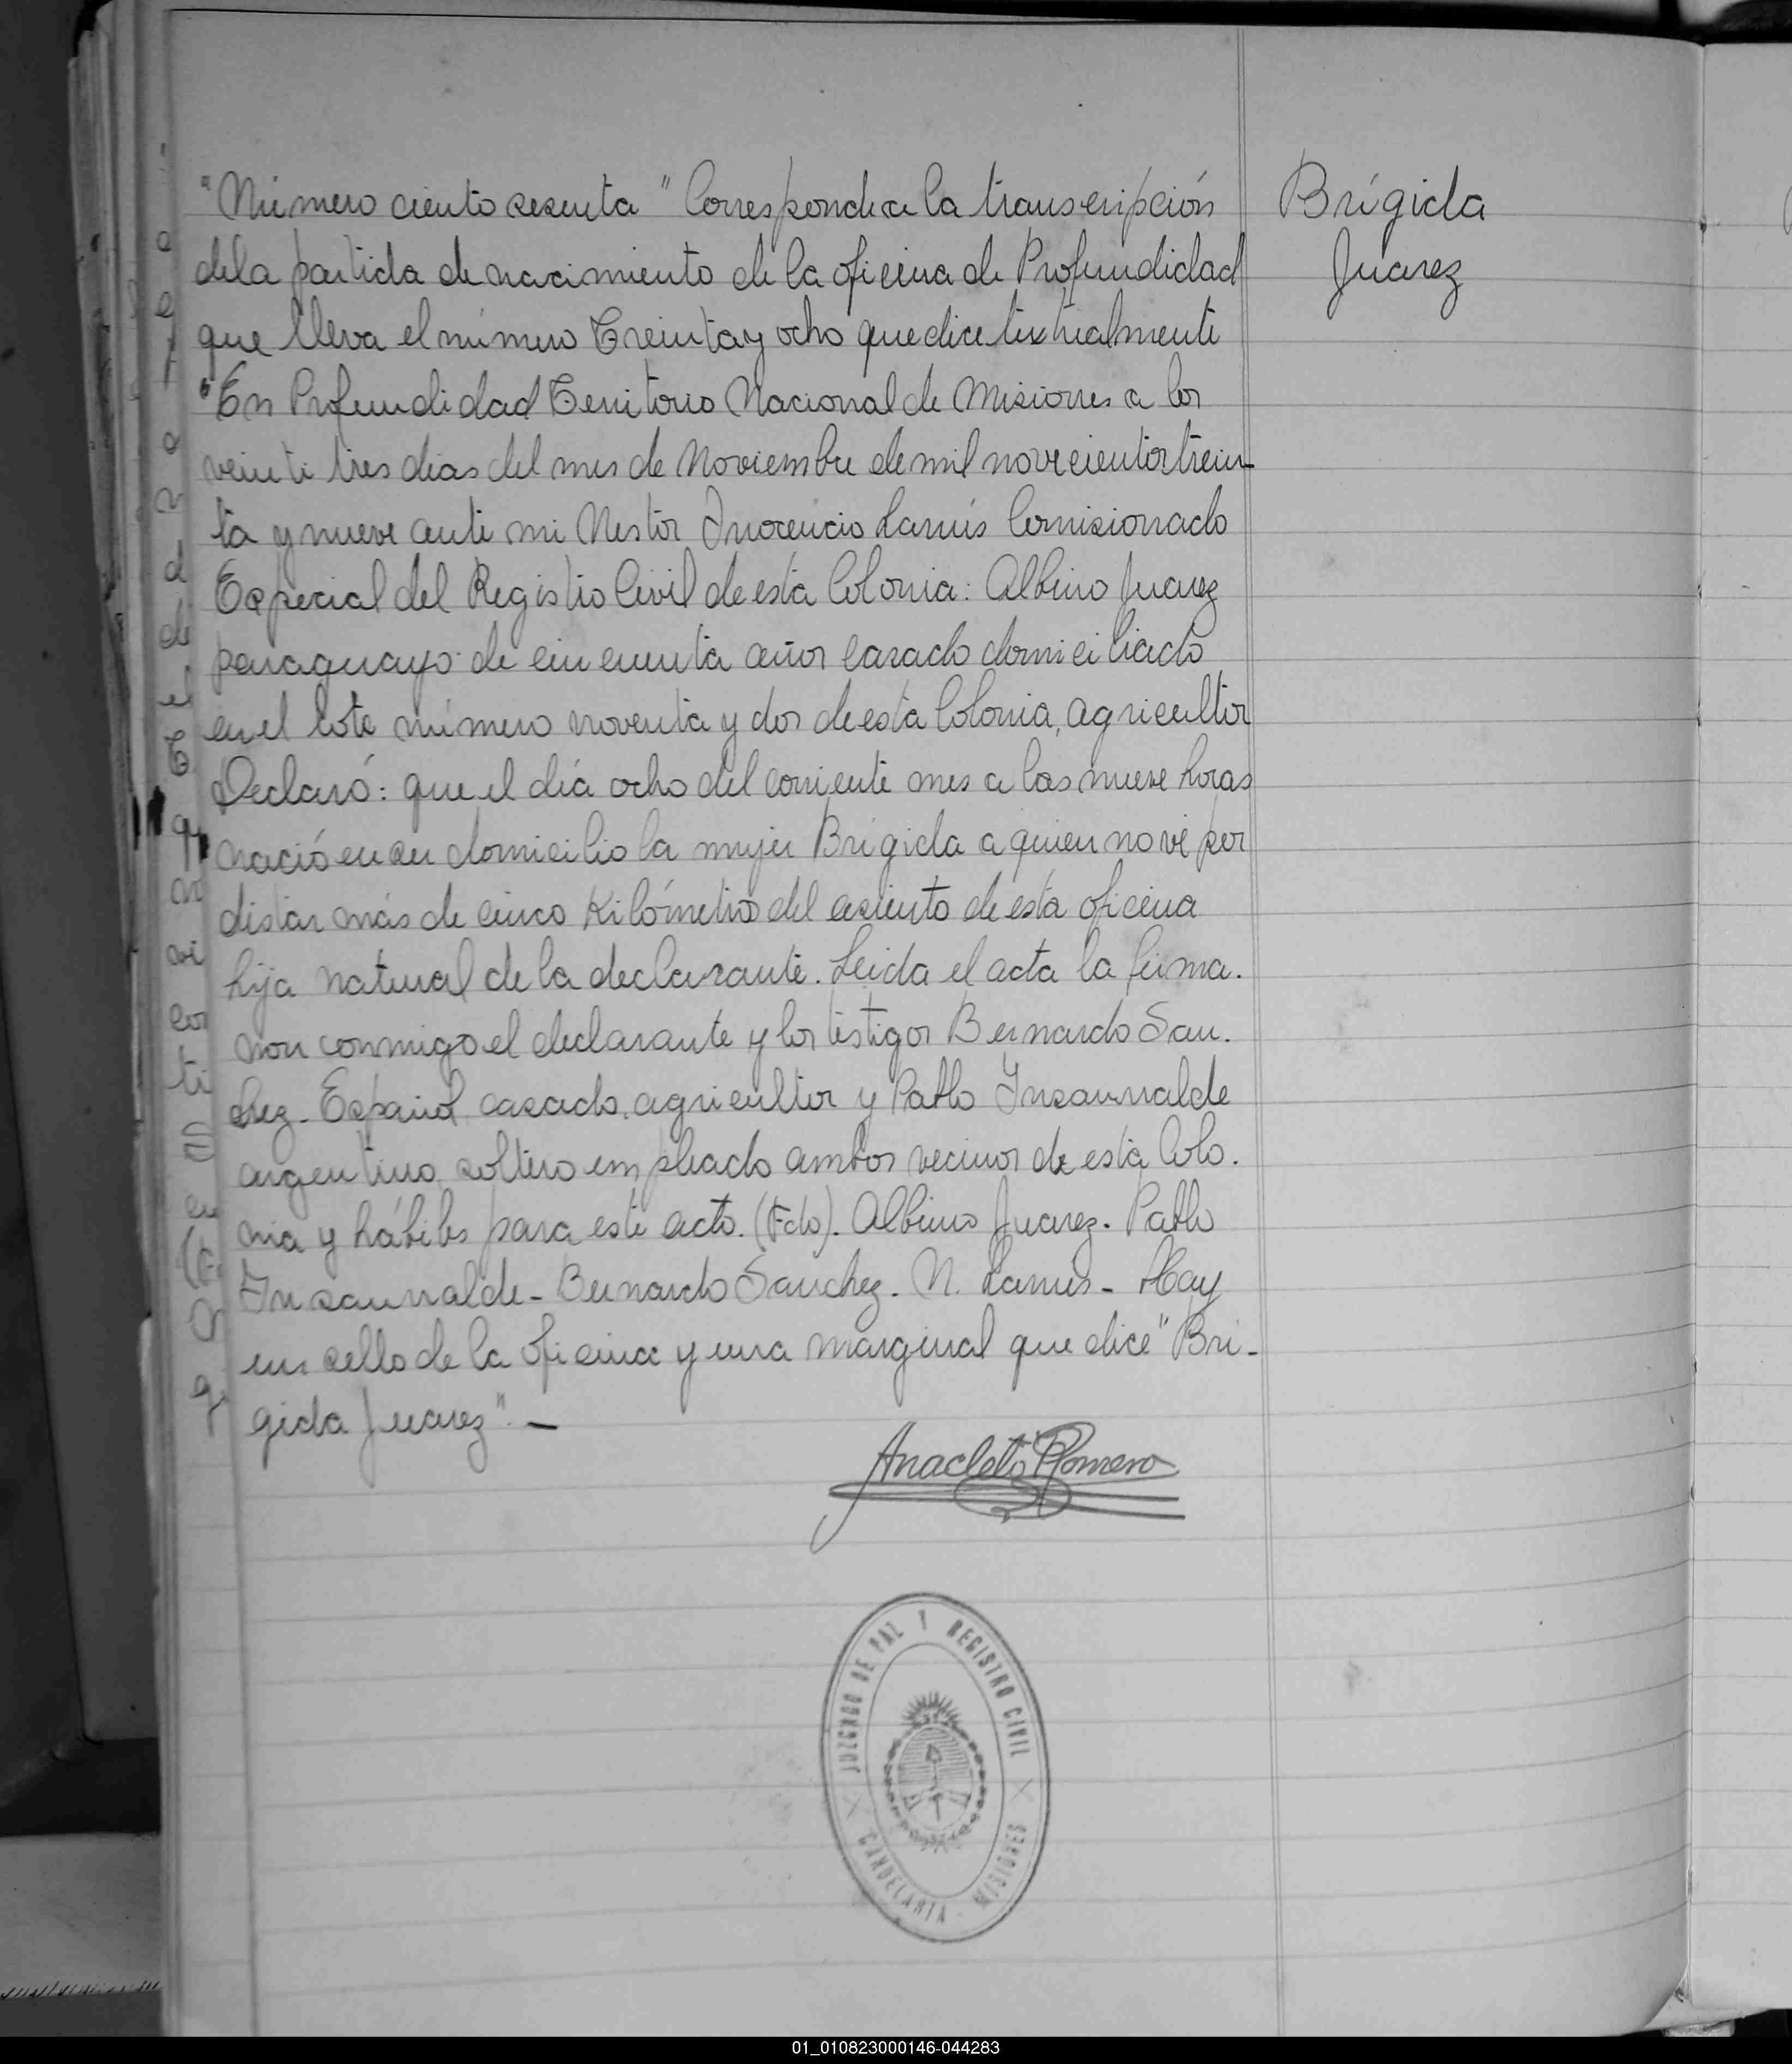 "Número ciento sesenta" Corresponde a la transcripción
de la partida de nacimiento de la oficina de Profundidad
que lleva el número Treinta y ocho que dice textualmente
"En Profundidad Territorio Nacional de Misiones a los
veinte tres dias del mes de Noviembre de mil novecientos trein-
ta y nueve ante mi Nestor Inocencio Lanús Comisionado
Especial del Registro Civil de esta Colonia: Albino Juarez
paraguayo de cincuenta años casado domiciliado
en el lote número noventa y dos de esta Colonia, agricultor
Declaró: que el día ocho del corriente mes a las nueve horas
nació en su domicilio la mujer Brígida a quien no vi por
distar más de cinco Kilómetros del asiento de esta oficina
hija natural de la declarante. Leida el acta la firma.
ron conmigo el declarante y los testigos Bernardo San.
chez - Español casado, agricultor y Pablo Insaurralde
argentino, soltero empleado ambos vecinos de esta Colo.
nia y hábiles para este acto. (Fdo). Albino Juarez. Pablo
Insaurralde - Bernardo Sanchez. N. Lanus - Hay
un sello de la oficina y una marginal que dice "Bri-
gida Juarez". -
Brígida
Juarez
Anacleto Romero
JUZGADO DE PAZ Y REGISTRO CIVIL
CANDELARIA - MISIONES
01_010823000146-044283